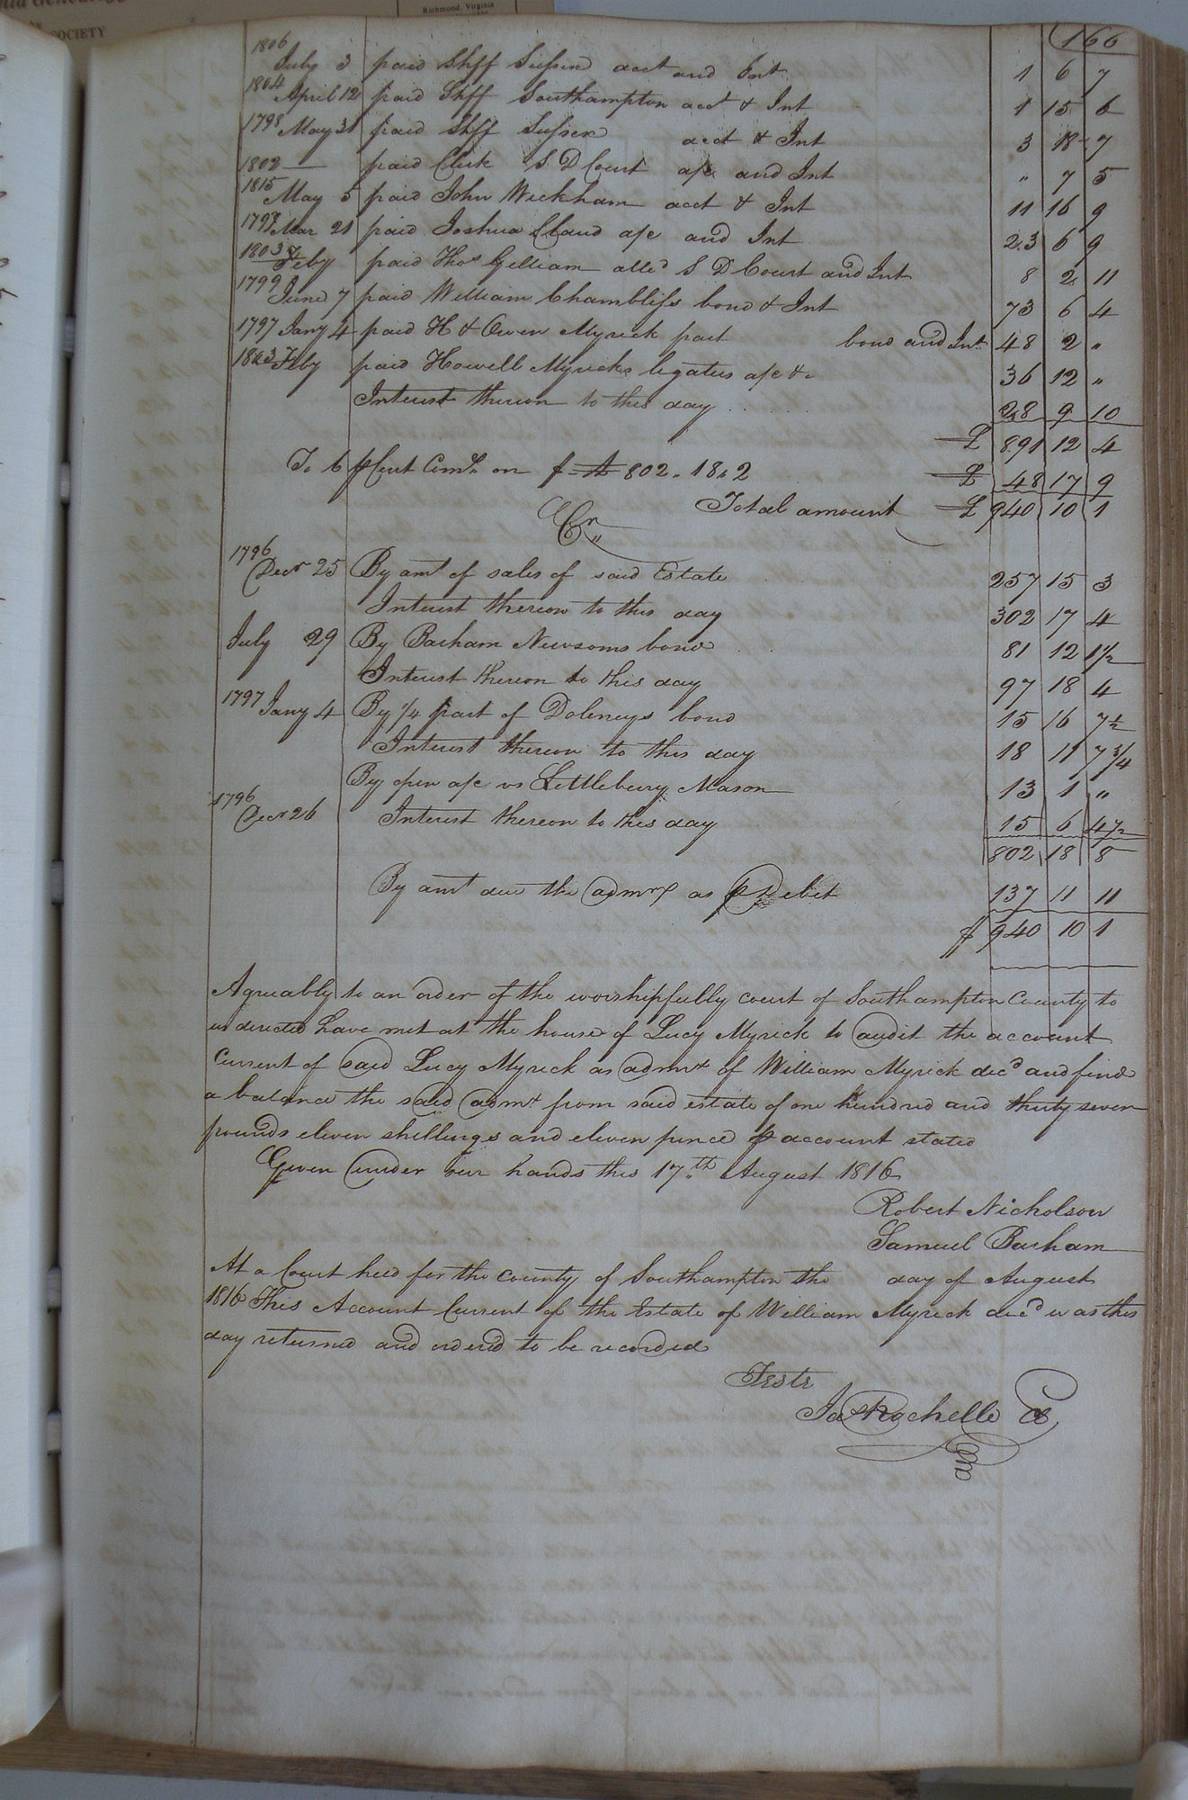 Richmond, Virginia
SOCIETY
166
1806 July 3 paid Shff Sussex acct and Int 1 6 7
1804 April 12 paid Shff Southampton acct & Int 1 15 6
1798 May 31 paid Shff Sussex acct & Int 3 18 7
1802 — paid Clerk S D Court a/c and Int " 7 5
1815 May 5 paid John Wickham acct & Int 11 16 9
1797 Mar 21 paid Joshua Claud a/c and Int 23 6 9
1803 Feby paid Thos Gilliam atto S D Court and Int 8 2 11
1799 June 7 paid William Chambliss bond & Int 73 6 4
1797 Jany 4 paid H & Owen Myrick part bond and Int 48 2 "
Feby paid Howell Myricks legatees a/c &c 36 12 "
Interest thereon to this day 28 9 10
£ 891 12 4
To 6 pCent Coms on £ 802. 18. 2 £ 48 17 9
Total amount £ 940 10 1
Cr
1796
Decr 25 By amt of sales of said Estate 257 15 3
Interest thereon to this day 302 17 4
July 29 By Barham Newsoms bond 81 12 1½
Interest thereon to this day 97 18 4
1797 Jany 4 By ¼ part of Deleneys bond 15 16 7½
Interest thereon to this day 18 11 7¾
By open a/c vs Littlebury Mason 13 1 "
1796
Decr 26 Interest thereon to this day 15 6 4½
802 18 8
By amt due the admrx as p Debit 137 11 11
£ 940 10 1
Agreeably to an order of the worshipfully court of Southampton County to
us directed have met at the house of Lucy Myrick to audit the account
Current of said Lucy Myrick as admx of William Myrick decd and find
a balance the said admx from said estate of one hundred and thirty seven
pounds eleven shillings and eleven pence p account stated
Given under our hands this 17th August 1816
Robert Nicholson
Samuel Barham
At a Court held for the county of Southampton the day of August
1816 This Account Current of the Estate of William Myrick decd was this
day returned and ordered to be recorded
Teste
Jas Rochelle Cl